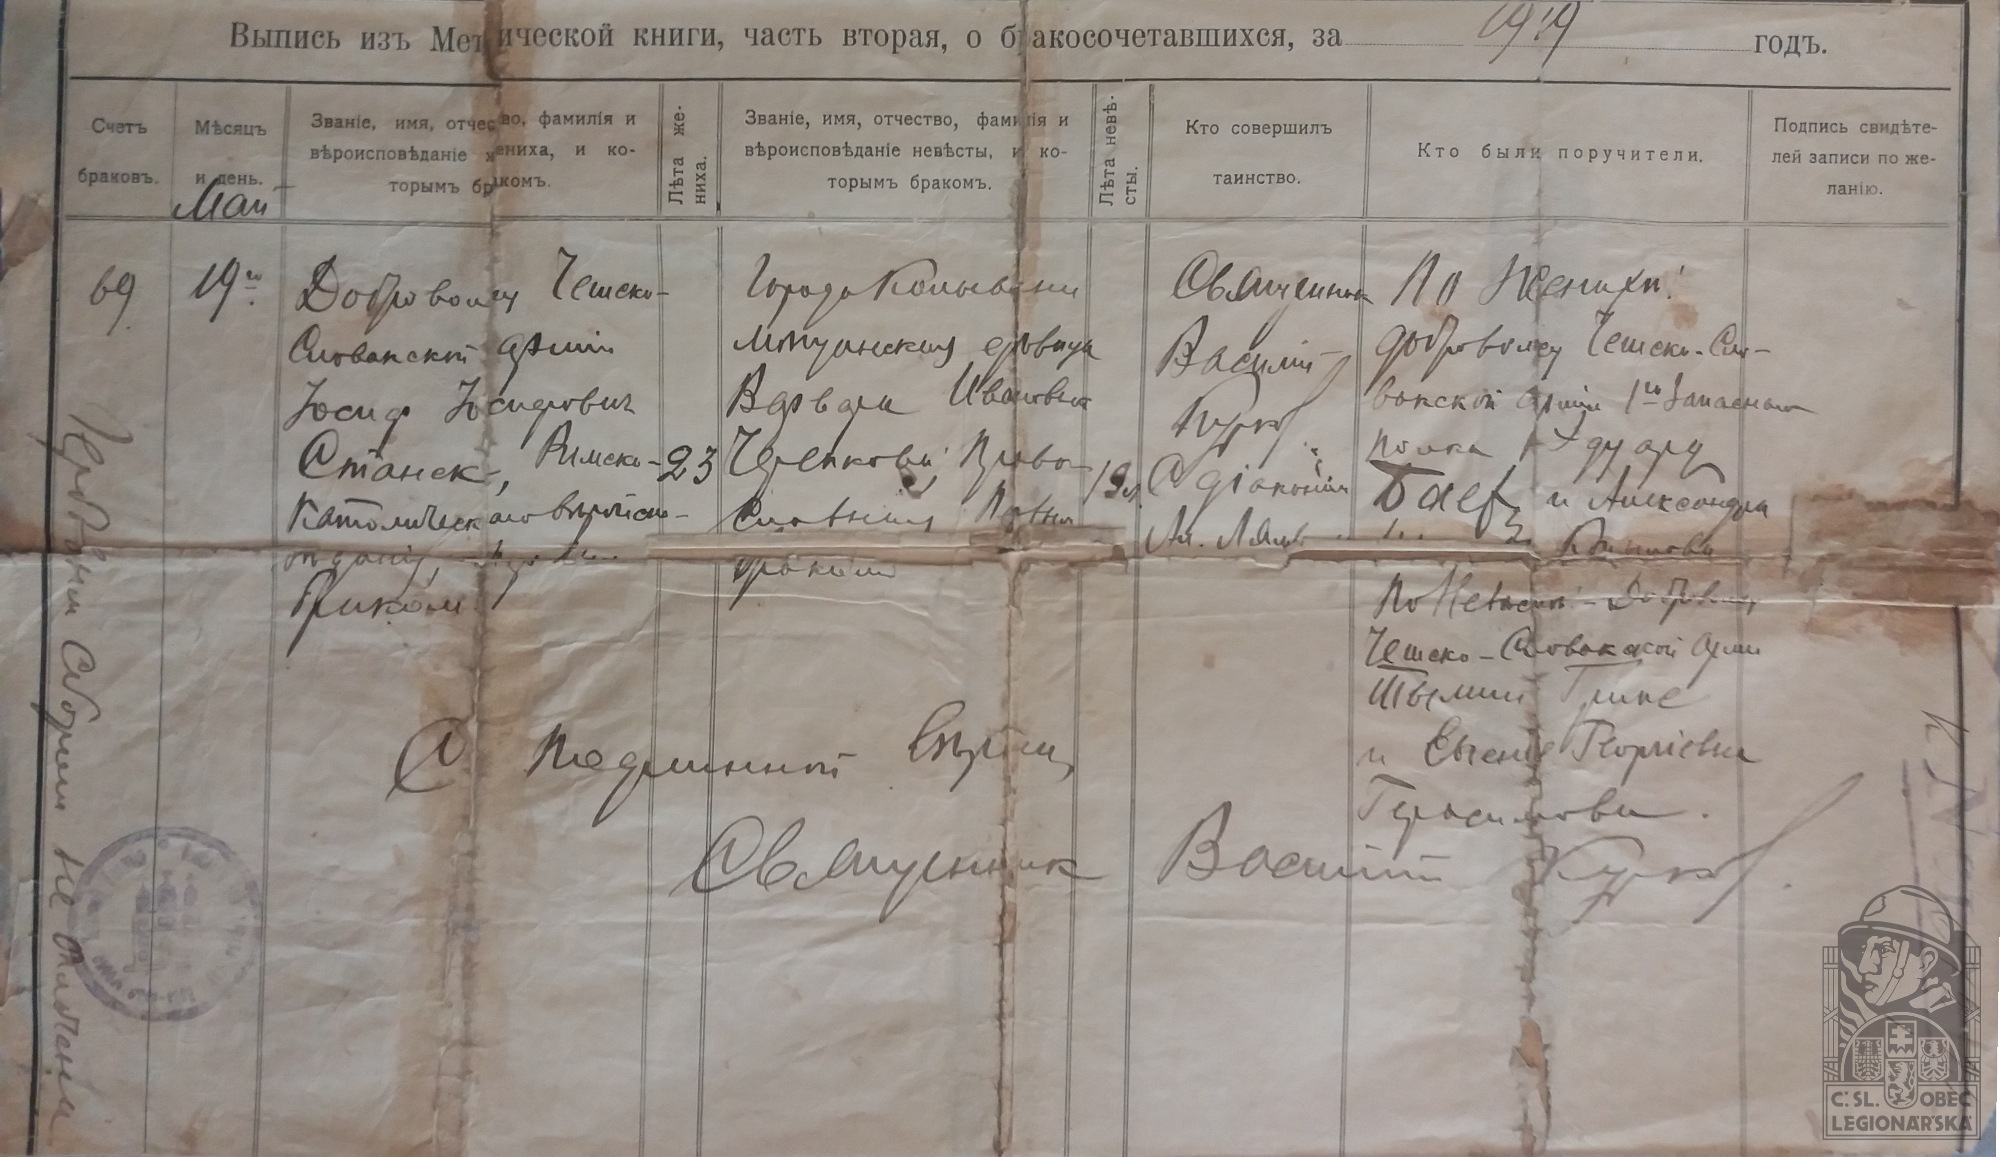 Выпись изъ Метрической книги, часть вторая, о бракосочетавшихся, за 1919 годъ.
Счетъ браковъ.
Мѣсяцъ и день.
Званіе, имя, отчество, фамилія и вѣроисповѣданіе жениха, и которымъ бракомъ.
Лѣта жениха.
Званіе, имя, отчество, фамилія и вѣроисповѣданіе невѣсты, и которымъ бракомъ.
Лѣта невѣсты.
Кто совершилъ таинство.
Кто были поручители.
Подпись свидѣтелей записи по желанію.
Май
69
19го
Доброволец Чешско-
Словакской арміи
Іосиф Іосифович
Станек, Римско-
Католическаго вѣроиспо-
вѣданія,
браком
23
Города Колывани
мѣщанская дѣвица
Варвара Ивановна
Черепкова Право-
славная
браком
19 л.
Священник
Василій
Курков
С діаконом
По Женихѣ:
доброволец Чешско-Сло-
вакской арміи 1го Запаснаго
полка Эдуард
и Александра
По Невѣстѣ: Доброволец
Чешско-Словакской арміи
и Евгенія Георгіевна
Герасимова.
С подлинной вѣрно,
Священник Василій Курков.
Гербовым Сбором не оплачена
Č. SL. OBEC
LEGIONÁŘSKÁ